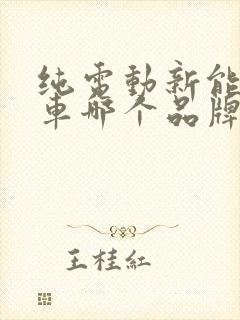 纯電動新能
車哪个品牌
王桂紅